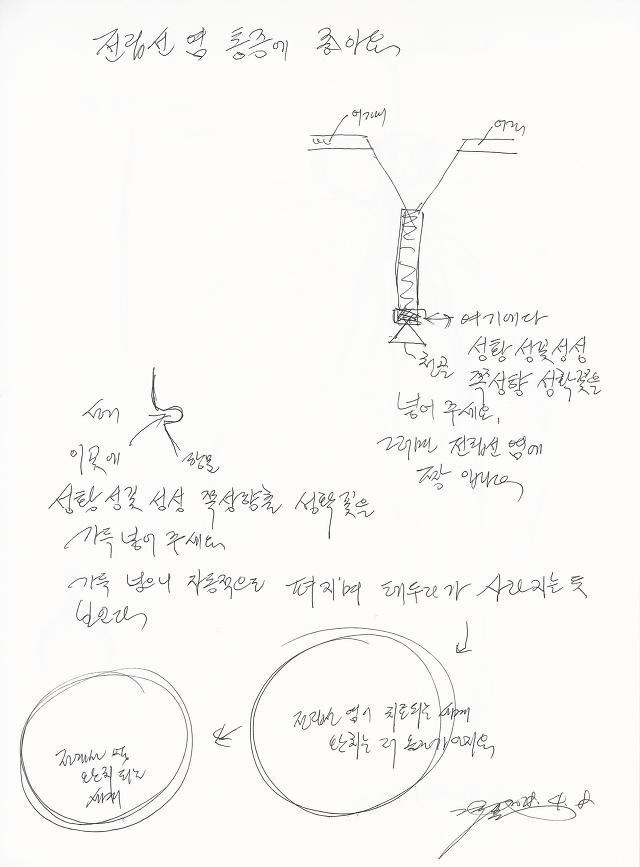 전립선 염 통증에 좋아요
여기에
여기
여기에다
천골
성황 성꽃 성성
쪽성향 성학꽃을
넣어 주세요.
그러면 전립선 염에
짱 입니다
이곳에
항문
성황 성꽃 성성 쪽성향을 성학꽃을
가득 넣어 주세요
가득 넣으니 자동적으로 펴지며 테두리가 사라지는 듯
보인다
전립선 염이 치료되는 세계
완치는 더 올라가야지요
전립선 염
완치 되는
세계